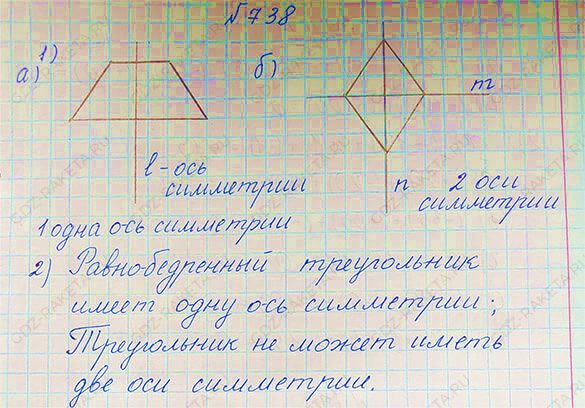 №738
1)
а)
б)
m
l - ось
симметрии
n 2 оси
симметрии
1 одна ось симметрии
2) Равнобедренный треугольник
имеет одну ось симметрии;
Треугольник не может иметь
две оси симметрии.
GDZ-RAKETA.RU